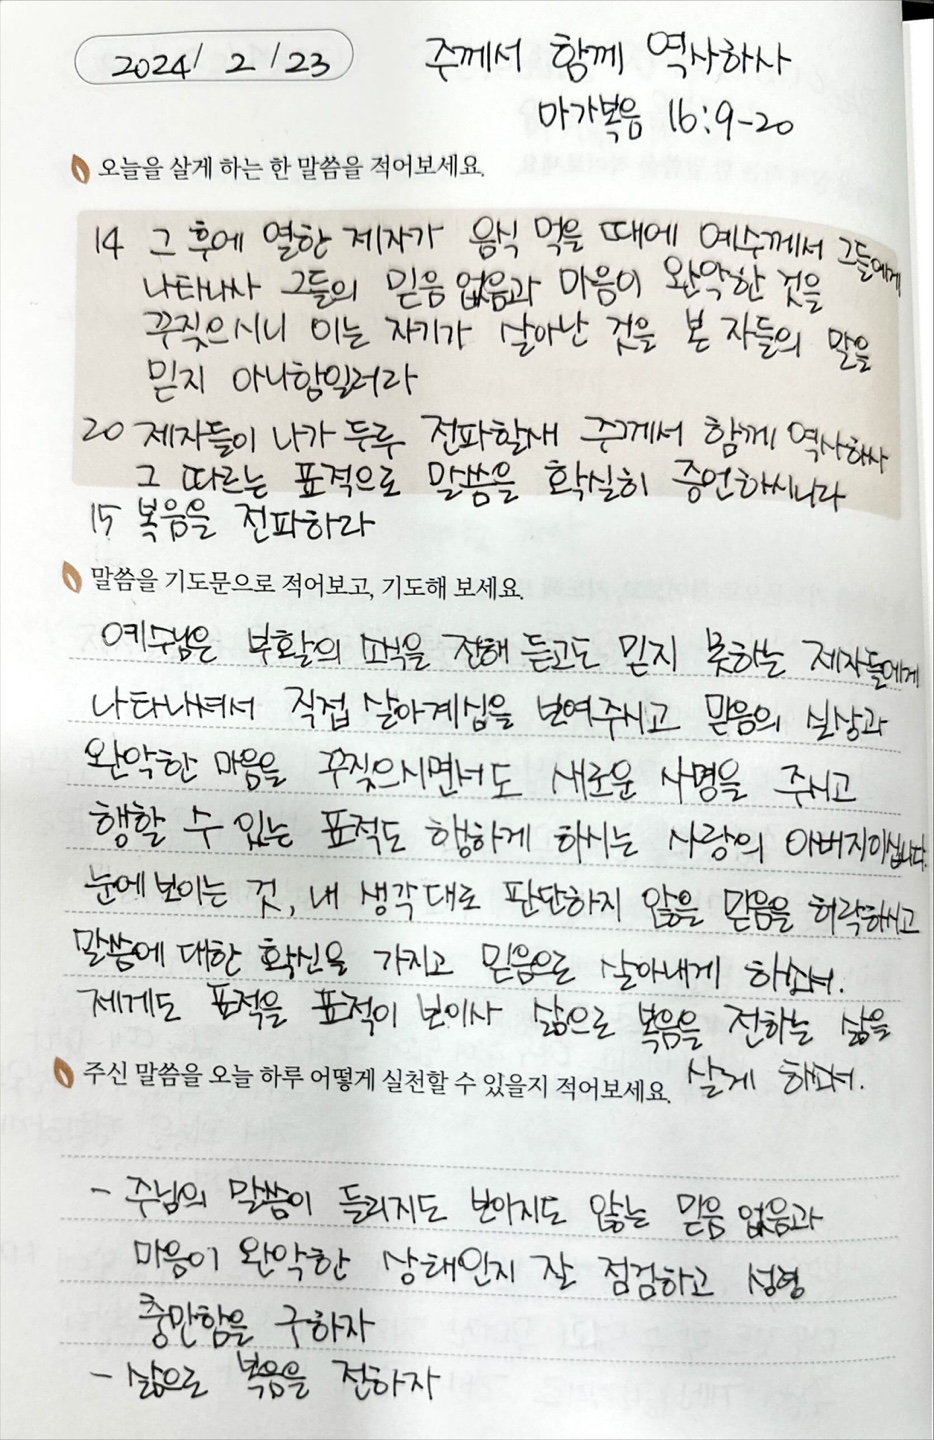 2024/ 2 / 23
주께서 함께 역사하사
마가복음 16:9-20
오늘을 살게 하는 한 말씀을 적어보세요.
14 그 후에 열한 제자가 음식 먹을 때에 예수께서 그들에게
나타나사 그들의 믿음 없음과 마음이 완악한 것을
꾸짖으시니 이는 자기가 살아난 것을 본 자들의 말을
믿지 아니함일러라
20 제자들이 나가 두루 전파할새 주께서 함께 역사하사
그 따르는 표적으로 말씀을 확실히 증언하시니라
15 복음을 전파하라
말씀을 기도문으로 적어보고, 기도해 보세요.
예수님은 부활의 소식을 전해 듣고도 믿지 못하는 제자들에게
나타내셔서 직접 살아계심을 보여주시고 믿음의 실상과
완악한 마음을 꾸짖으시면서도 새로운 사명을 주시고
행할 수 있는 표적도 행하게 하시는 사랑의 아버지이십니다.
눈에 보이는 것, 내 생각대로 판단하지 않을 믿음을 허락하시고
말씀에 대한 확신을 가지고 믿음으로 살아내게 하소서.
제게도 표적을 표적이 보이사 삶으로 복음을 전하는 삶을
살게 하소서.
주신 말씀을 오늘 하루 어떻게 실천할 수 있을지 적어보세요.
- 주님의 말씀이 들리지도 보이지도 않는 믿음 없음과
마음이 완악한 상태인지 잘 점검하고 성령
충만함을 구하자
- 삶으로 복음을 전하자